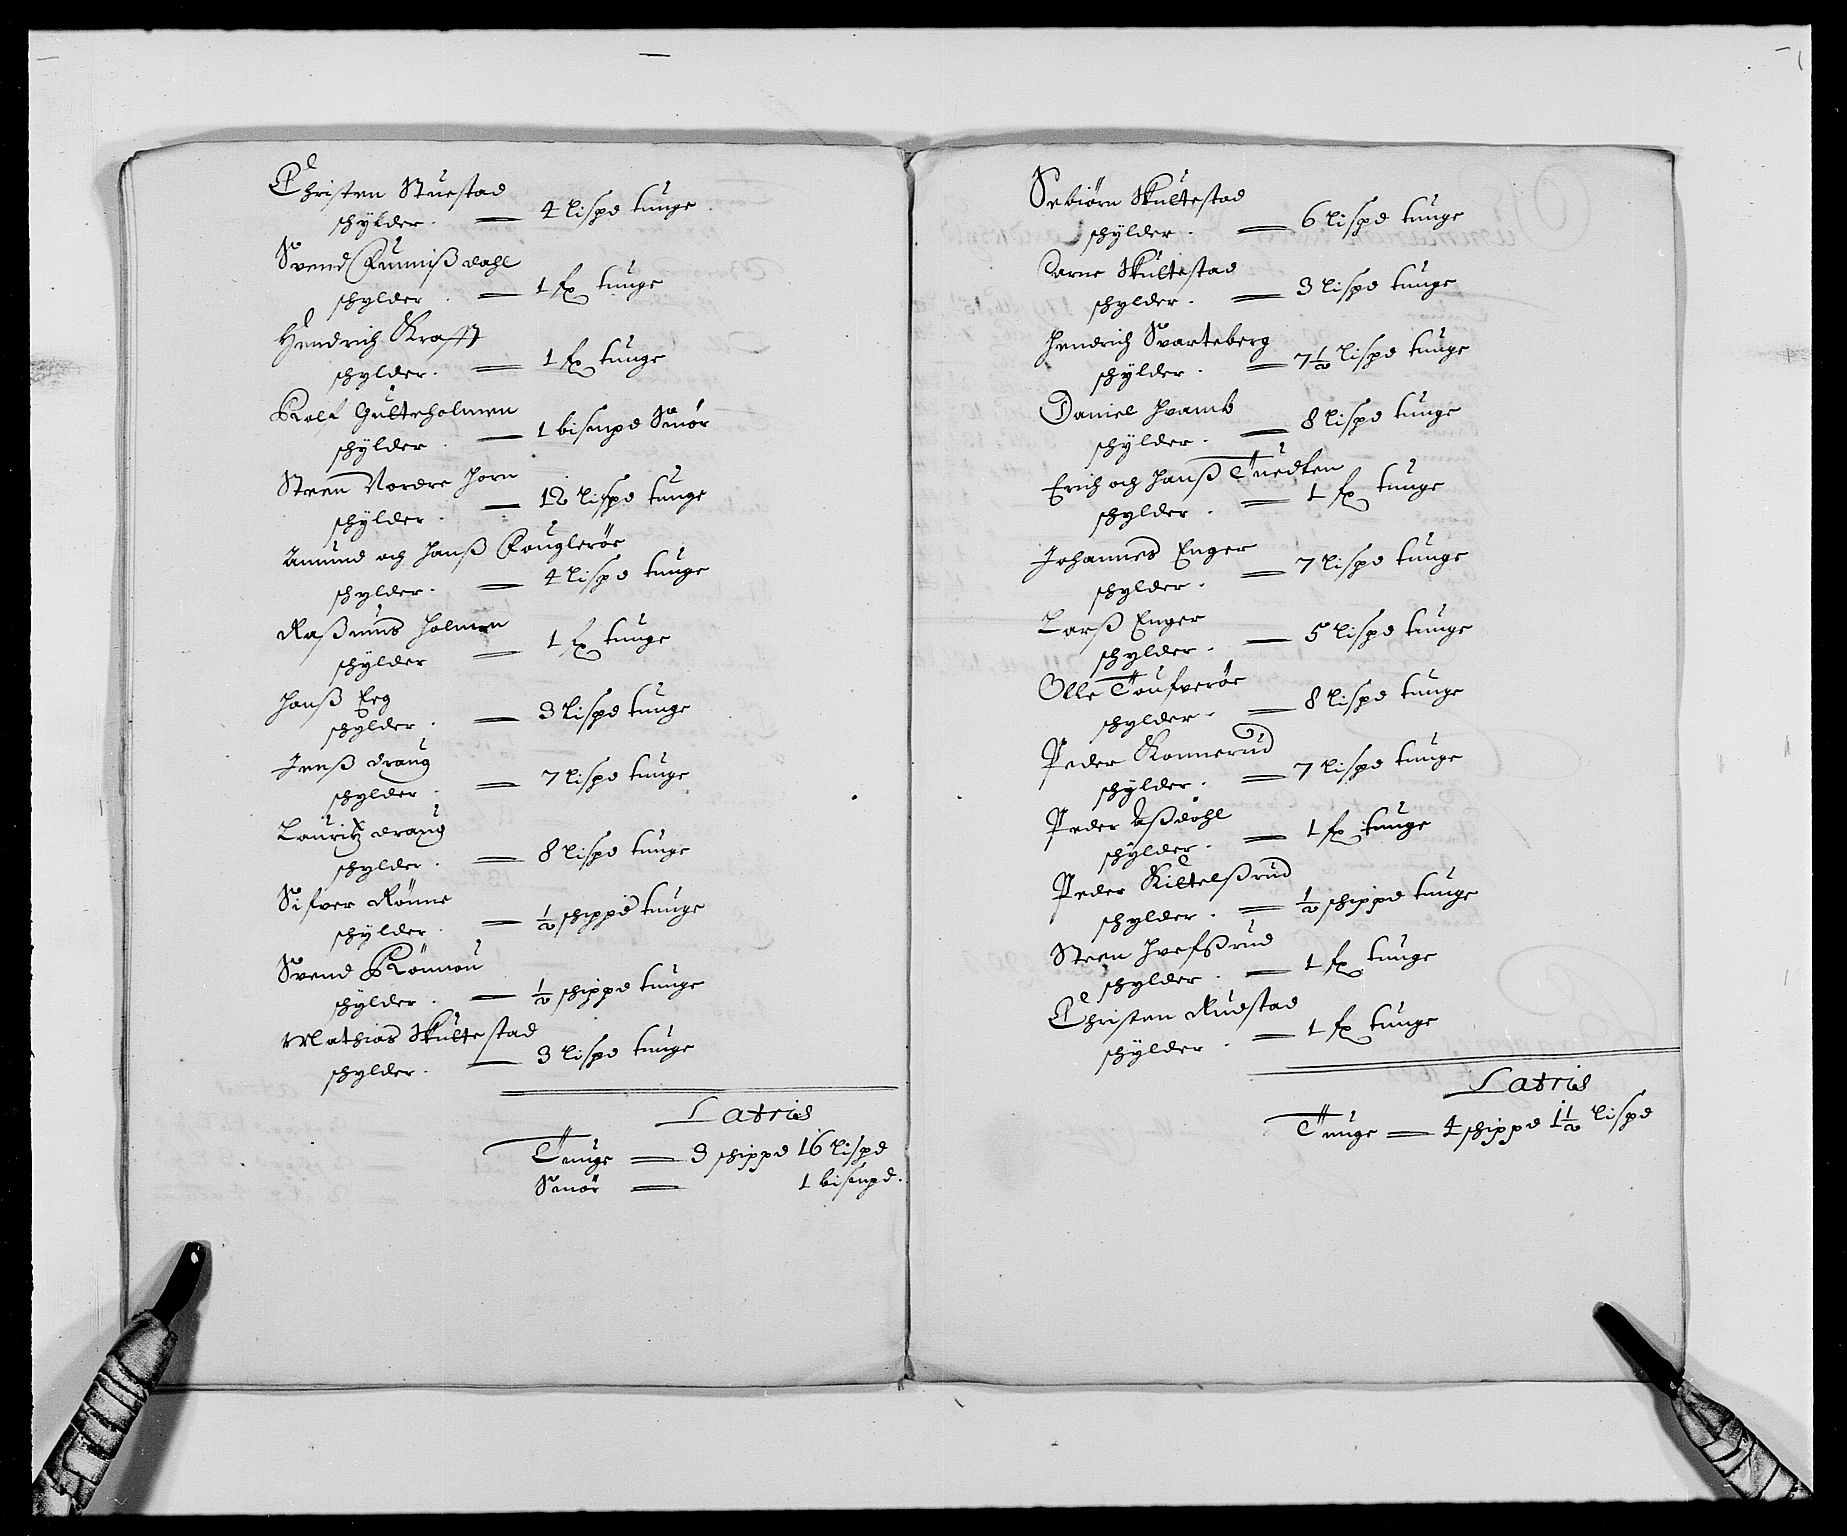 Christen Stuestad
schylder. — 4 lispd tunge.
Svend Runniß dahl
schylder. — 1 fx tunge
Hendrich Krafft
schylder. — 1 fx tunge
Rolf Gulteholmen
schylder. — 1 bismpd Smör
Steen Nordre Horn
schylder. — 12 lispd tunge
Amund och Hanß Rougleröe
schylder. — 4 lispd tunge
Raßmus Holmen
schylder — 1 fx tunge
Hanß Eeg
schylder. — 3 lispd tunge
Jenß draug
schylder. — 7 lispd tunge
Lauritz draug
schylder. — 8 lispd tunge
Sifver Rönne
schylder. — ½ schippd tunge
Svend Rönnou
schylder. — ½ schippd tunge
Mathias Skultestad
schylder. — 3 lispd tunge
Latris
Tunge — 3 schippd 16 lispd
Smör — 1 bismpd.
Sebiörn Skultestad
schylder. — 6 lispd tunge
Aarne Skultestad
schylder. — 3 lispd tunge
Hendrich Svarteberg
schylder. — 7½ lispd tunge
Daniel Hvamb
schylder. — 8 lispd tunge
Erich och Hanß Tuedten
schylder. — 1 fx tunge
Johannes Enger
schylder. — 7 lispd tunge
Larß Enger
schylder. — 5 lispd tunge
Olle Toufveröe
schylder. — 8 lispd tunge
Peder Konnerud
schylder. — 7 lispd tunge
Peder Aßdöhl
schylder. — 1 fx tunge
Peder Kiltelßrud
schylder. — ½ schippd tunge
Steen Hvefßrud
schylder. — 1 fx tunge
Christen Rudstad
schylder. — 1 fx tunge
Latris
Tunge — 4 schippd 1½ lispd